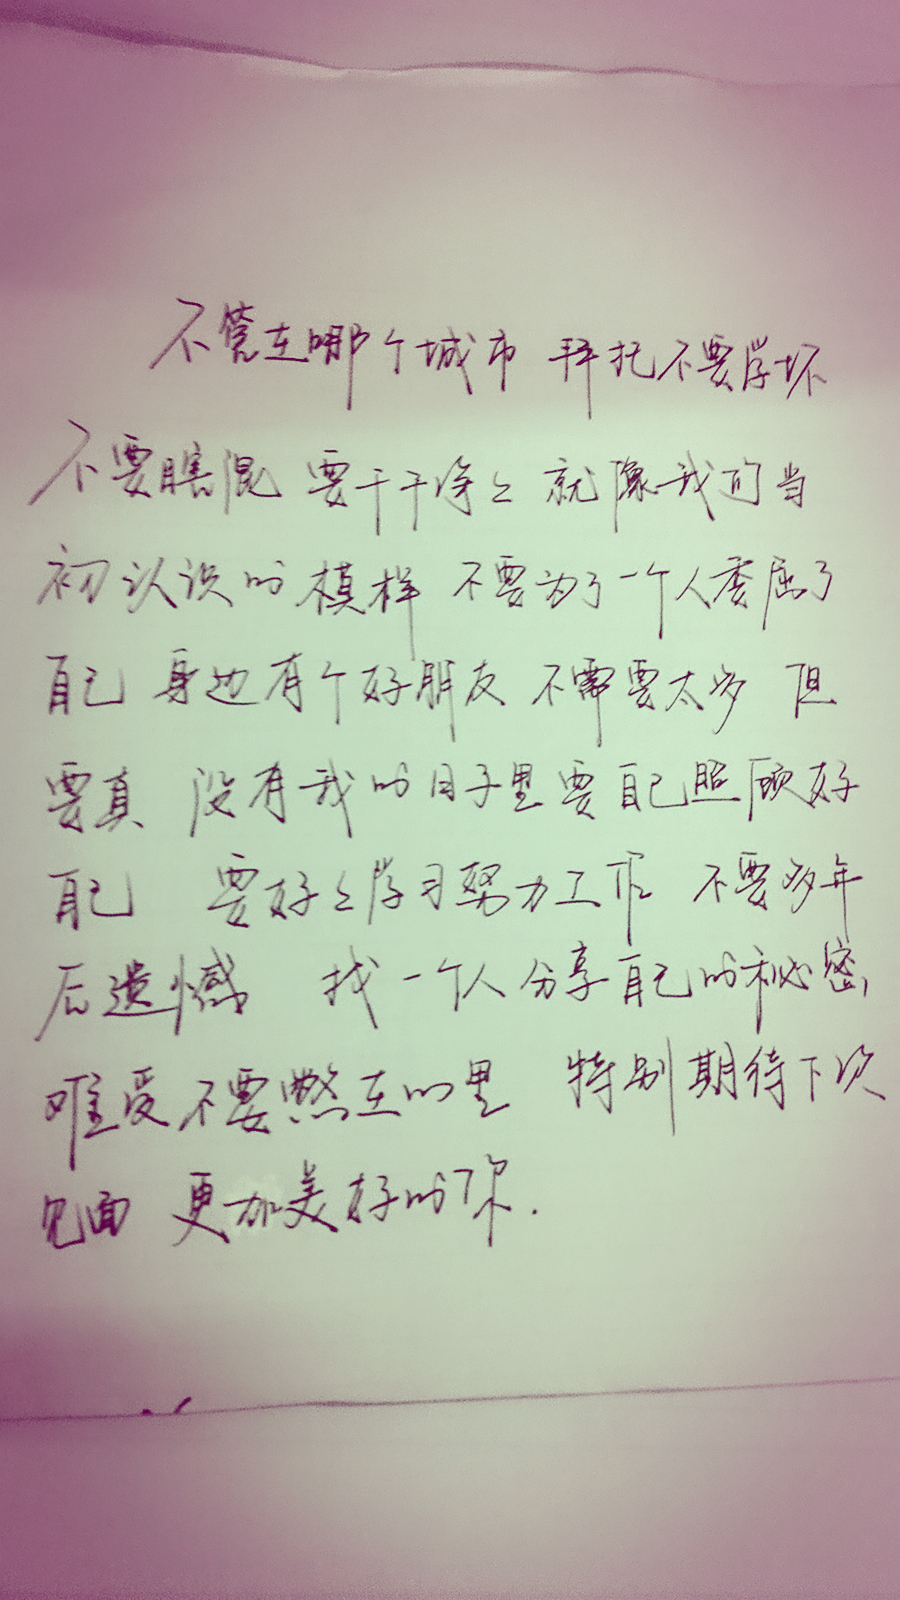 不管在哪个城市 拜托不要学坏
不要瞎混 要干干净々 就像我们当
初认识的模样 不要为了一个人委屈了
自己 身边有个好朋友 不需要太多 但
要真 没有我的日子里要自己照顾好
自己 要好々学习努力工作 不要多年
后遗憾 找一个人分享自己的秘密
难受不要憋在心里 特别期待下次
见面 更加美好的你.